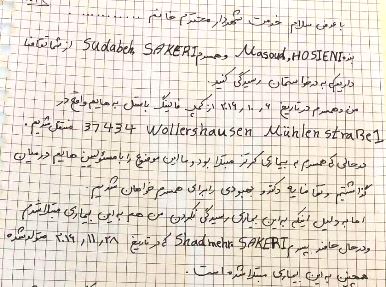 با عرض سلام خدمت شهردار محترم خانم ............
بنده Masoud, HOSIENI و همسرم Sudabeh SAKERI از شما تقاضا
داریم که به درخواستمان رسیدگی کنید.
من و همسرم در تاریخ ۲۰۱۹,۱۰,۶ از کمپ فالینگ باستل به هایم واقع در
37434 Wollershausen Mühlenstraße1 منتقل شدیم.
در حالی که همسرم به بیماری مبتلا بود و ما این موضوع را با مسئولین هایم در میان
گذاشتیم و تقاضای دکتر و بهبودی را برای همسرم خواهان شدیم
اما به دلیل اینکه به این بیماری رسیدگی نکردن من هم به این بیماری مبتلا شدم
و در حال حاضر پسرم Shadmehr SAKERI که در تاریخ ۲۰۱۹,۱۱,۲۸ متولد شده
همچنین به این بیماری مبتلا شده است.